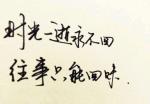 时光一逝永不回
往事只能回味.